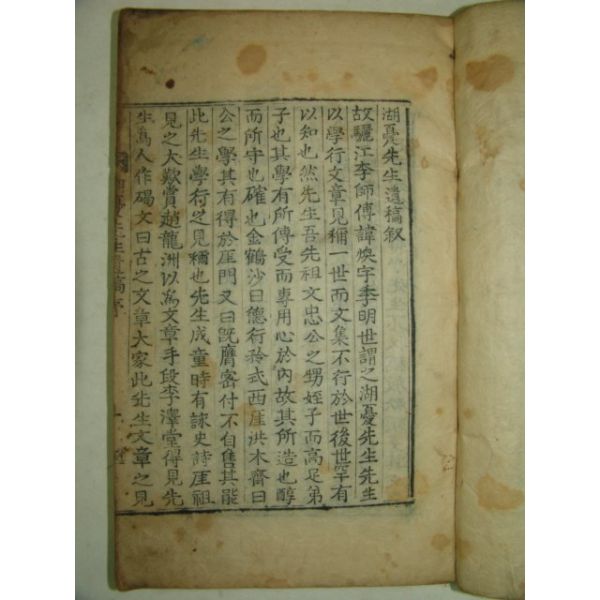 湖憂先生遺稿叙
故驪江李師傅諱煥字季明世謂之湖憂先生先生
以學行文章見稱一世而文集不行於世後世罕有
以知也然先生吾先祖文忠公之甥姪子而高足弟
子也其學有所傳受而專用心於內故其所造也醇
而所守也確也金鶴沙曰德行矜式西厓洪木齋曰
公之學其有得於厓門又曰旣膺密付不自售其能
此先生學行之見稱也先生成童時有詠史詩厓祖
見之大歎賞趙龍洲以爲文章手段李澤堂得見先
生爲人作碣文曰古之文章大家此先生文章之見
湖憂先生遺稿序